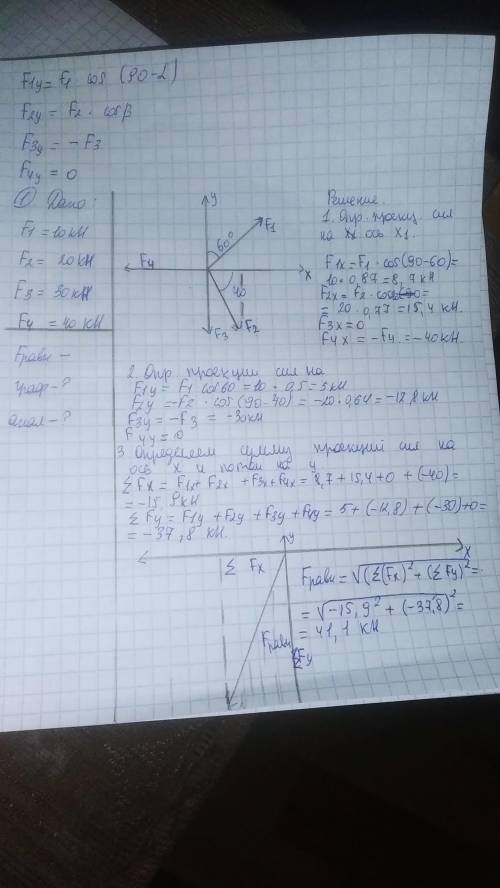 F1y = F1 cos (90-L)
F2y = F2 · cosβ
F3y = - F3
F4y = 0
① Дано:
F1 = 10 кН
F2 = 20 кН
F3 = 30 кН
F4 = 40 кН
Fравн -
граф - ?
анал - ?
y
F1
60°
F4
x
40
F3
F2
Решение.
1. Опр. проекц. сил
на ось x1.
F1x = F1 · cos(90-60) =
10 · 0,87 = 8,7 кН
F2x = F2 · cos
= 20 · 0,77 = 15,4 кН.
F3x = 0
F4x = -F4 = -40кН.
2. Опр проекции сил на
F1y = F1 cos60 = 10 · 0,5 = 5 кН
F2y = -F2 · cos (90-40) = -20 · 0,64 = -12,8 кН
F3y = -F3 = -30кН
F4y = 0
3. Определяем сумму проекций сил на
ось x и потом на y
Σ Fx = F1x + F2x + F3x + F4x = 8,7 + 15,4 + 0 + (-40) =
= -15,9 кН
Σ Fy = F1y + F2y + F3y + F4y = 5 + (-12,8) + (-30) + 0 =
= -37,8 кН.
y
x
Σ Fx
Fравн
Σ Fy
Fравн = √(Σ(Fx)² + (Σ Fy)² =
= √-15,9² + (-37,8)² =
= 41,1 кН